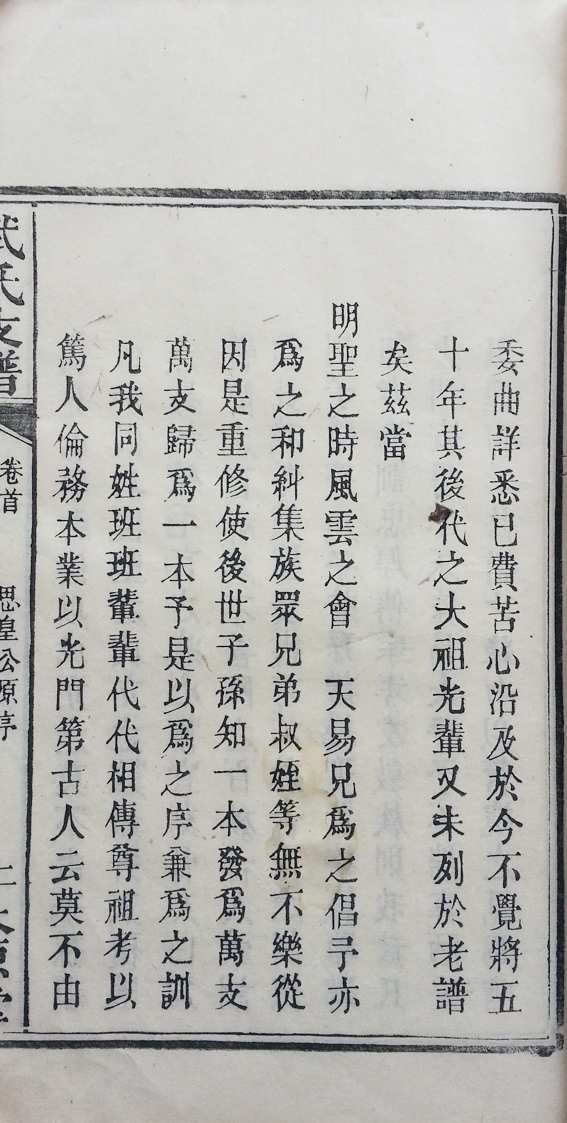 委曲詳悉已費苦心沿及於今不覺將五
十年其後代之大祖先輩又未列於老譜
矣茲當
明聖之時風雲之會 天易兄爲之倡予亦
爲之和糾集族眾兄弟叔姪等無不樂從
因是重修使後世子孫知一本發爲萬支
萬支歸爲一本予是以爲之序兼爲之訓
凡我同姓班班輩輩代代相傳尊祖考以
篤人倫務本業以光門第古人云莫不由
武氏支譜 卷首 思皇公原序